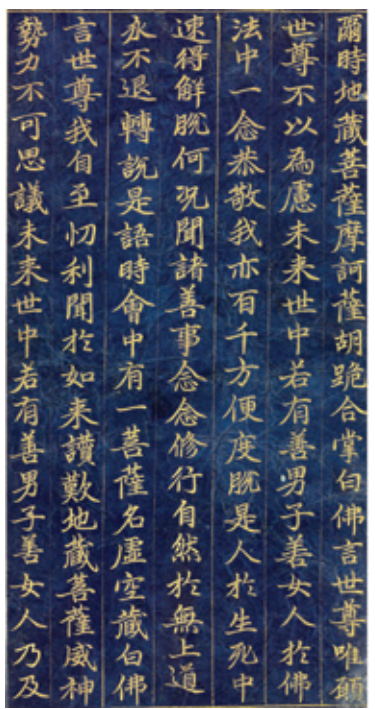 爾時地藏菩薩摩訶薩胡跪合掌白佛言世尊唯願
世尊不以為慮未来世中若有善男子善女人於佛
法中一念恭敬我亦百千方便度脫是人於生死中
速得解脫何況聞諸善事念念修行自然於無上道
永不退轉說是語時會中有一菩薩名虛空藏白佛
言世尊我自至忉利聞於如来讚歎地藏菩薩威神
勢力不可思議未来世中若有善男子善女人乃及